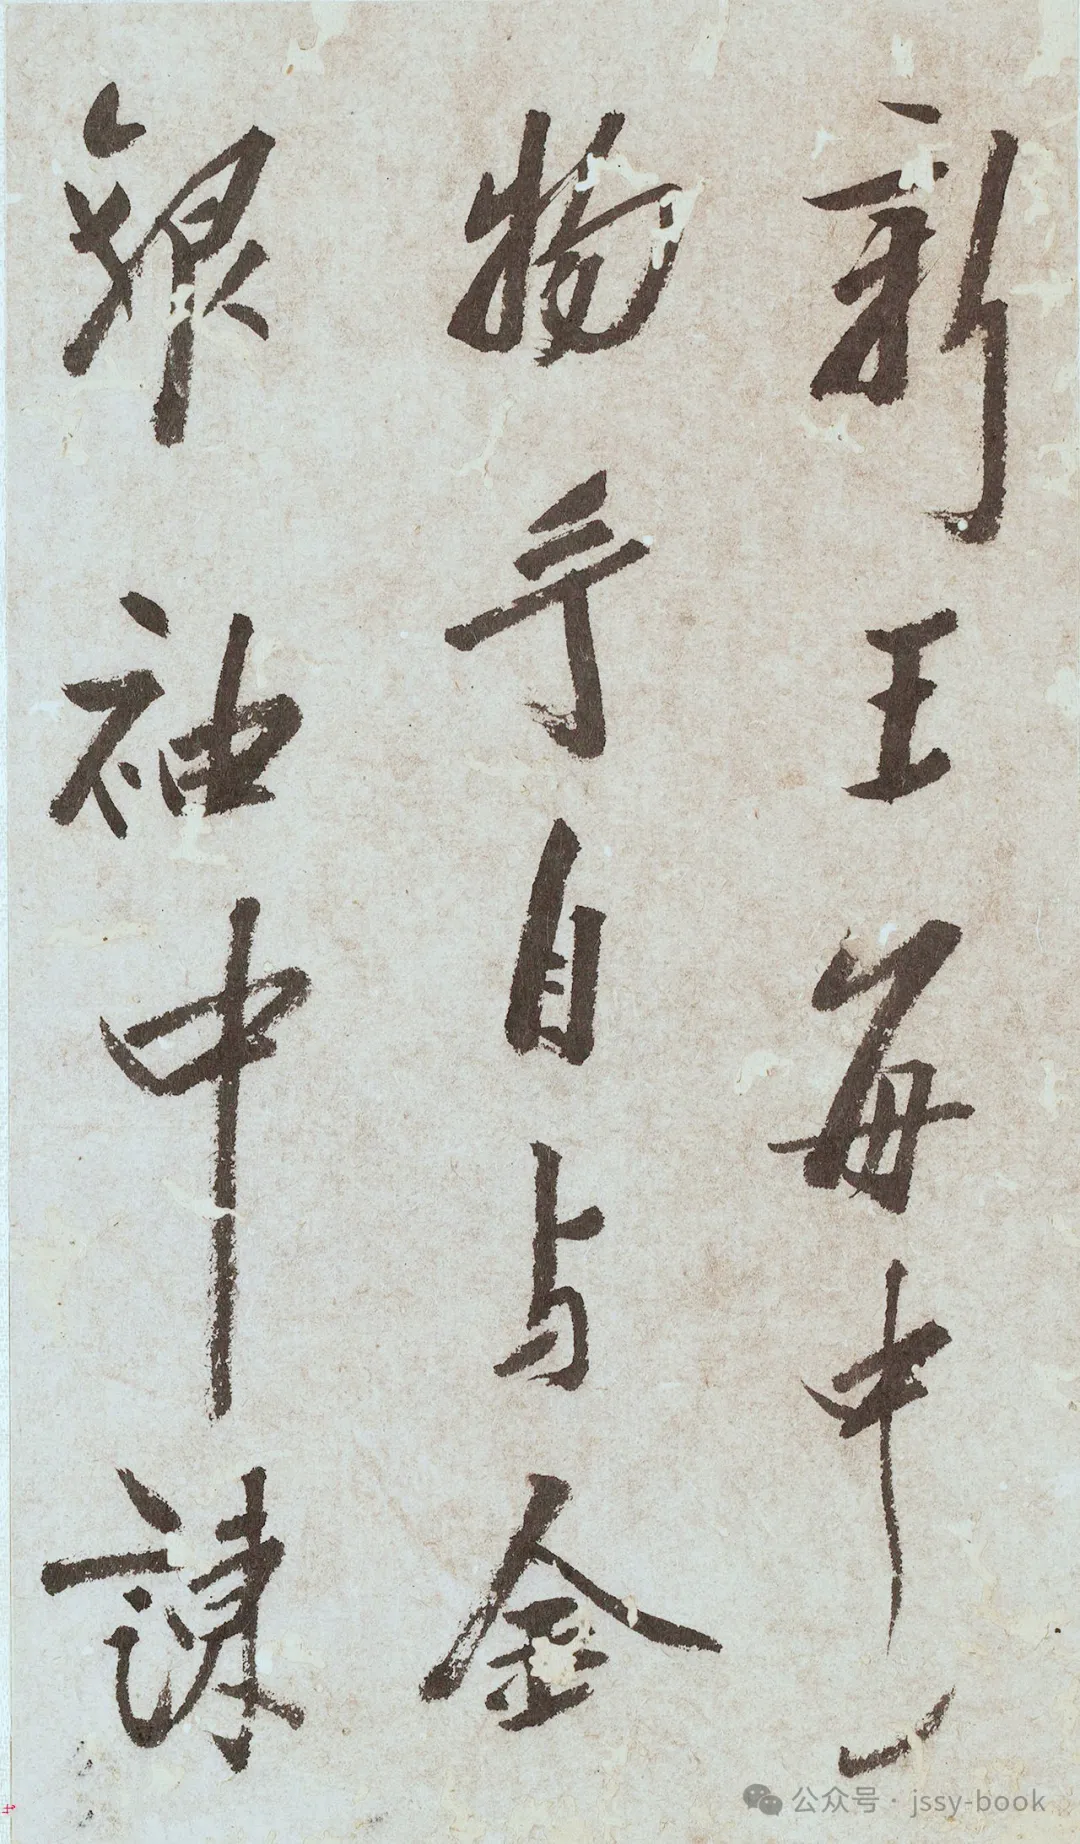 新王每中一
物手自与金
銀袖中諫
公众号 · jssy-book